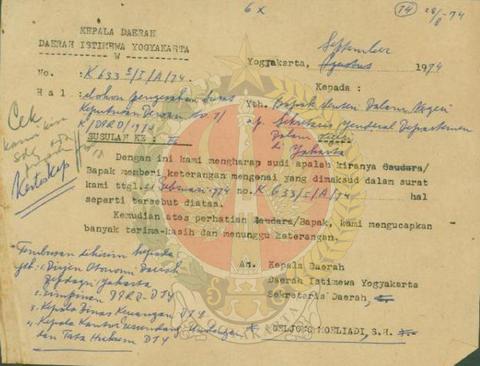 6 x
74
28/8 - 74
KEPALA DAERAH
DAERAH ISTIMEWA YOGYAKARTA
W
September
Yogyakarta, Agustus 1974
No. : K 633 /I/A/74.
Kepada :
Hal : Mohon pengesahan Surat
Keputusan Dewan No. 7/
K/DPRD/1974
Yth. Bapak Menteri Dalam Negeri
Sekretaris Jenderal Departemen
Dalam Negeri
di
Jakarta
Cek
SUSULAN KE :
Dengan ini kami mengharap sudi apalah kiranya Saudara/
Bapak memberi keterangan mengenai yang dimaksud dalam surat
kami ttgl. Februari 1974 no. K /I/A/74 hal
seperti tersebut diatas.
Kemudian atas perhatian Saudara/Bapak, kami mengucapkan
banyak terima-kasih dan menunggu keterangan.
Tembusan dikirim kepada
yth :
Dirjen Otonomi Daerah
Jakarta
An. Kepala Daerah
Daerah Istimewa Yogyakarta
Sekretaris Daerah,
Pimpinan DPRD DIY
Kepala Dinas Keuangan DIY
Kepala Kantor Perundang Undangan
dan Tata Hukum DIY
SOELJONO MOELIADI, S.H.